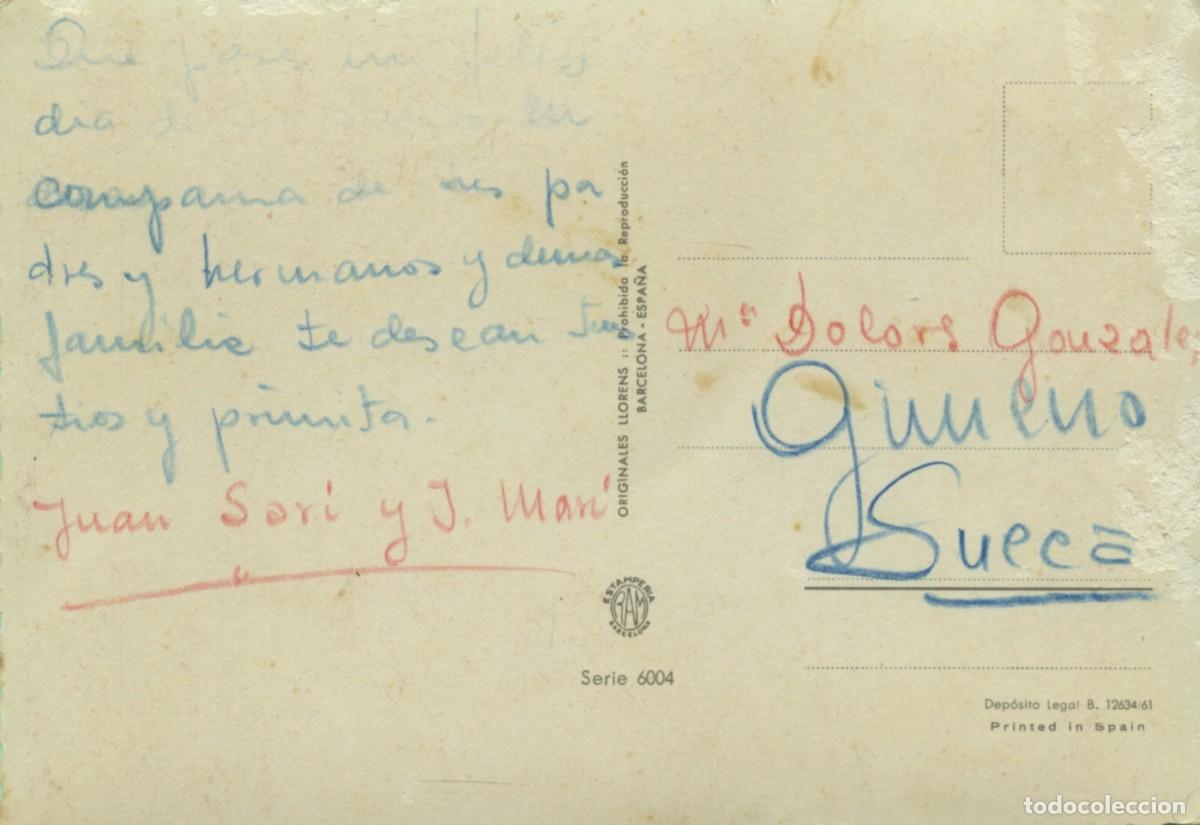 Que pase un feliz
dia de en
compania de tus pa
dres y hermanos y demas
familia te desean tus
tios y primita.
Juan Sari y J. Mari
ORIGINALES LLORENS :: Prohibida la Reproducción
BARCELONA - ESPAÑA
Mª Dolors Gonzales
Gimeno
Sueca
ESTAMPERIA
RAM
BARCELONA
Serie 6004
Depósito Legal B. 12634/61
Printed in Spain
todocoleccion